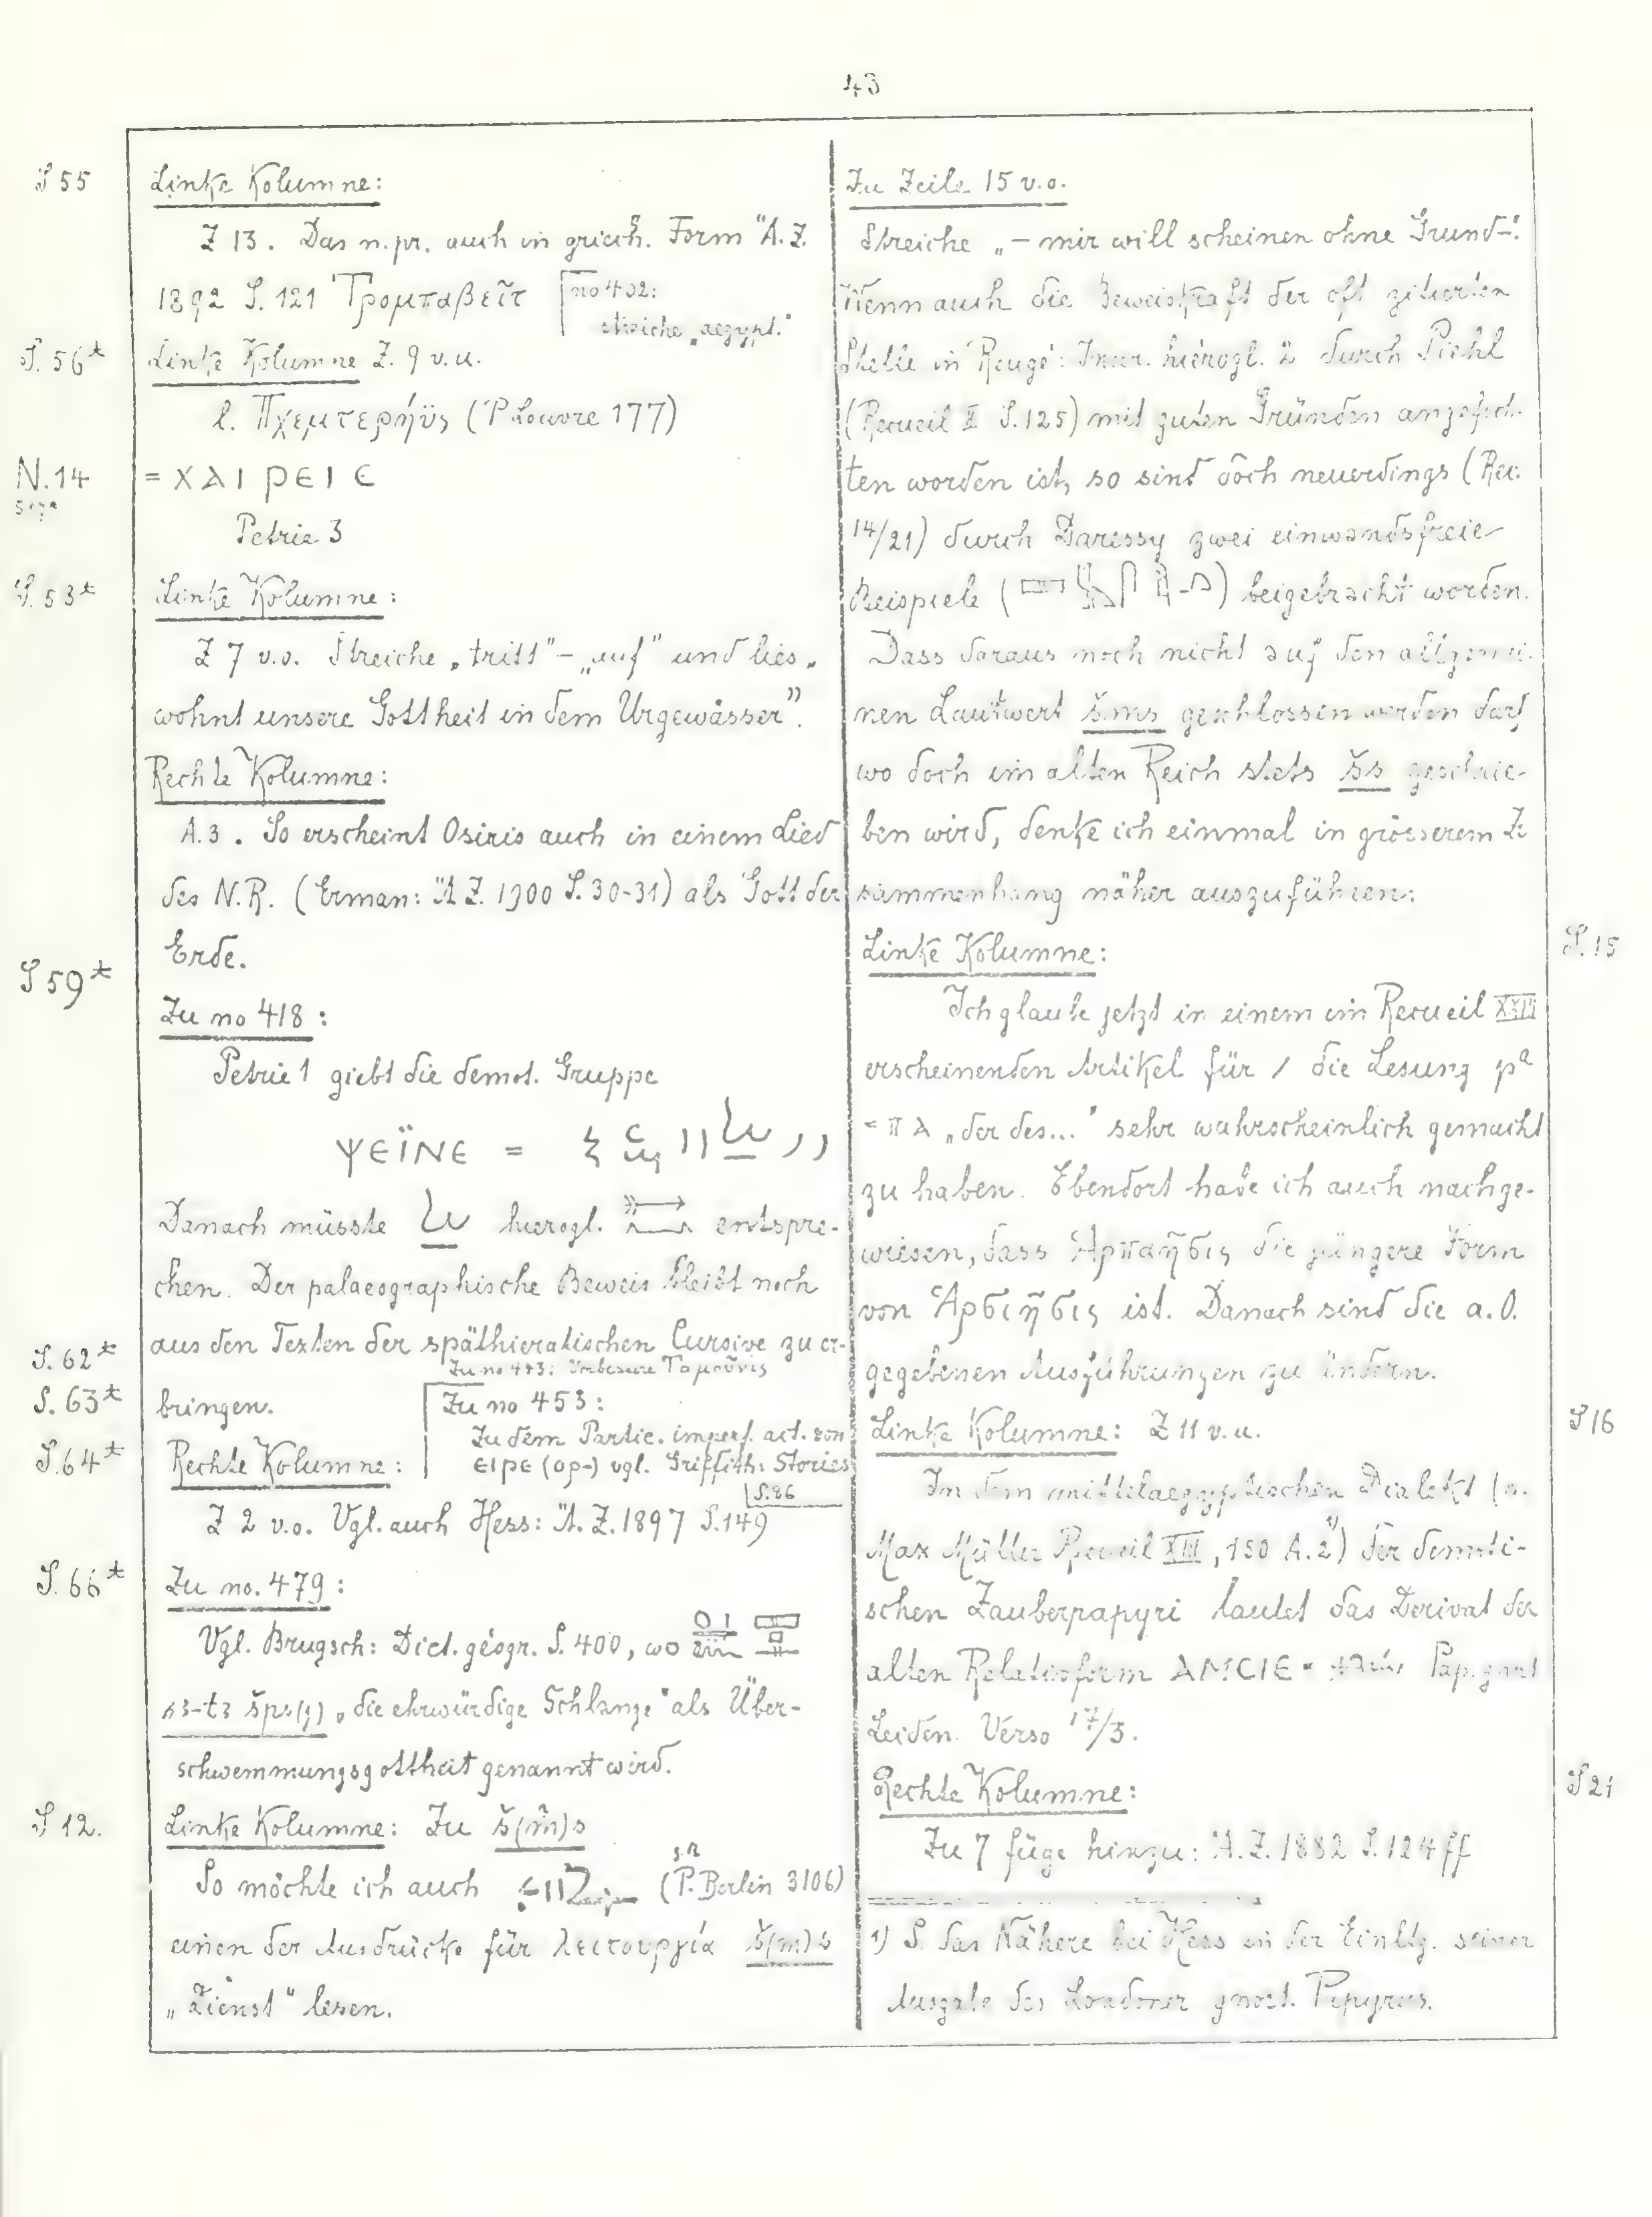 43
S 55
Linke Kolumne:
Z 13. Das n.pr. auch in griech. Form ÄZ.
1892 S. 121 Τρομπαβεῖτ
no 402:
streiche „aegypt."
S. 56*
Linke Kolumne Z. 9 v.u.
l. Πχεμτερῆϋς (P Louvre 177)
N. 14
= ΧΑΙΡΕΙΕ
Petrie 3
S. 53*
Linke Kolumne:
Z 7 v.o. Streiche „tritt" – „auf" und lies „
wohnt unsere Gottheit in dem Urgewässer".
Rechte Kolumne:
A.3. So erscheint Osiris auch in einem Lied
des N.R. (Erman: ÄZ. 1900 S. 30-31) als Gott der
Erde.
S 59*
Zu no 418:
Petrie 1 giebt die demot. Gruppe
ΨΕΪΝΕ =
Danach müsste hierogl. entspre-
chen. Der palaeographische Beweis bleibt noch
aus den Texten der späthieratischen Cursive zu er-
S. 62*
Zu no 443: Verbessere Ταμοῦνις
S. 63*
bringen.
Zu no 453:
Zu dem Partic. imperf. act. von
ειρε (ορ-) vgl. Griffith: Stories
S. 86
S. 64*
Rechte Kolumne:
Z 2 v.o. Vgl. auch Hess: Ä.Z. 1897 S. 149
S. 66*
Zu no. 479:
Vgl. Brugsch: Dict. géogr. S. 400, wo
šps(j) „die ehrwürdige Schlange" als Über-
schwemmungsgottheit genannt wird.
S 12.
Linke Kolumne: Zu š(m)s
So möchte ich auch (P. Berlin 3106)
einen der Ausdrücke für λειτουργία š(m)s
„Dienst" lesen.
Zu Zeile 15 v.o.
Streiche „– mir will scheinen ohne Grund –".
Wenn auch die Beweiskraft der oft zitierten
Stelle in Rougé: Inscr. hiérogl. durch Piehl
(Recueil II S. 125) mit guten Gründen angefoch-
ten worden ist, so sind doch neuerdings (Rec.
14/21) durch Daressy zwei einwandsfreie
Beispiele ( ) beigebracht worden.
Dass daraus noch nicht auf den allgemei-
nen Lautwert šms geschlossen werden darf
wo doch im alten Reich stets šs geschrie-
ben wird, denke ich einmal in grösserem Zu
sammenhang näher auszuführen.
S. 15
Linke Kolumne:
Ich glaube jetzt in einem im Recueil
erscheinenden Artikel für / die Lesung pa
= ΠΑ „der des..." sehr wahrscheinlich gemacht
zu haben. Ebendort habe ich auch nachge-
wiesen, dass Ἁρπαῆσις die jüngere Form
von Ἁρσιῆσις ist. Danach sind die a.O.
gegebenen Ausführungen zu ändern.
S 16
Linke Kolumne: Z 11 v.u.
In dem mittelaegyptischen Dialekt (s.
Max Müller Recueil XIII, 150 A. 2 1)) der demoti-
schen Zauberpapyri lautet das Derivat der
alten Relativform ΑΜCΙΕ = Pap. gnost
Leiden. Verso 17/3.
S 21
Rechte Kolumne:
Zu 7 füge hinzu: Ä.Z. 1882 S. 124 ff
1) S. das Nähere bei Hess in der Einltg. seiner
Ausgabe des Londoner gnost. Papyrus.